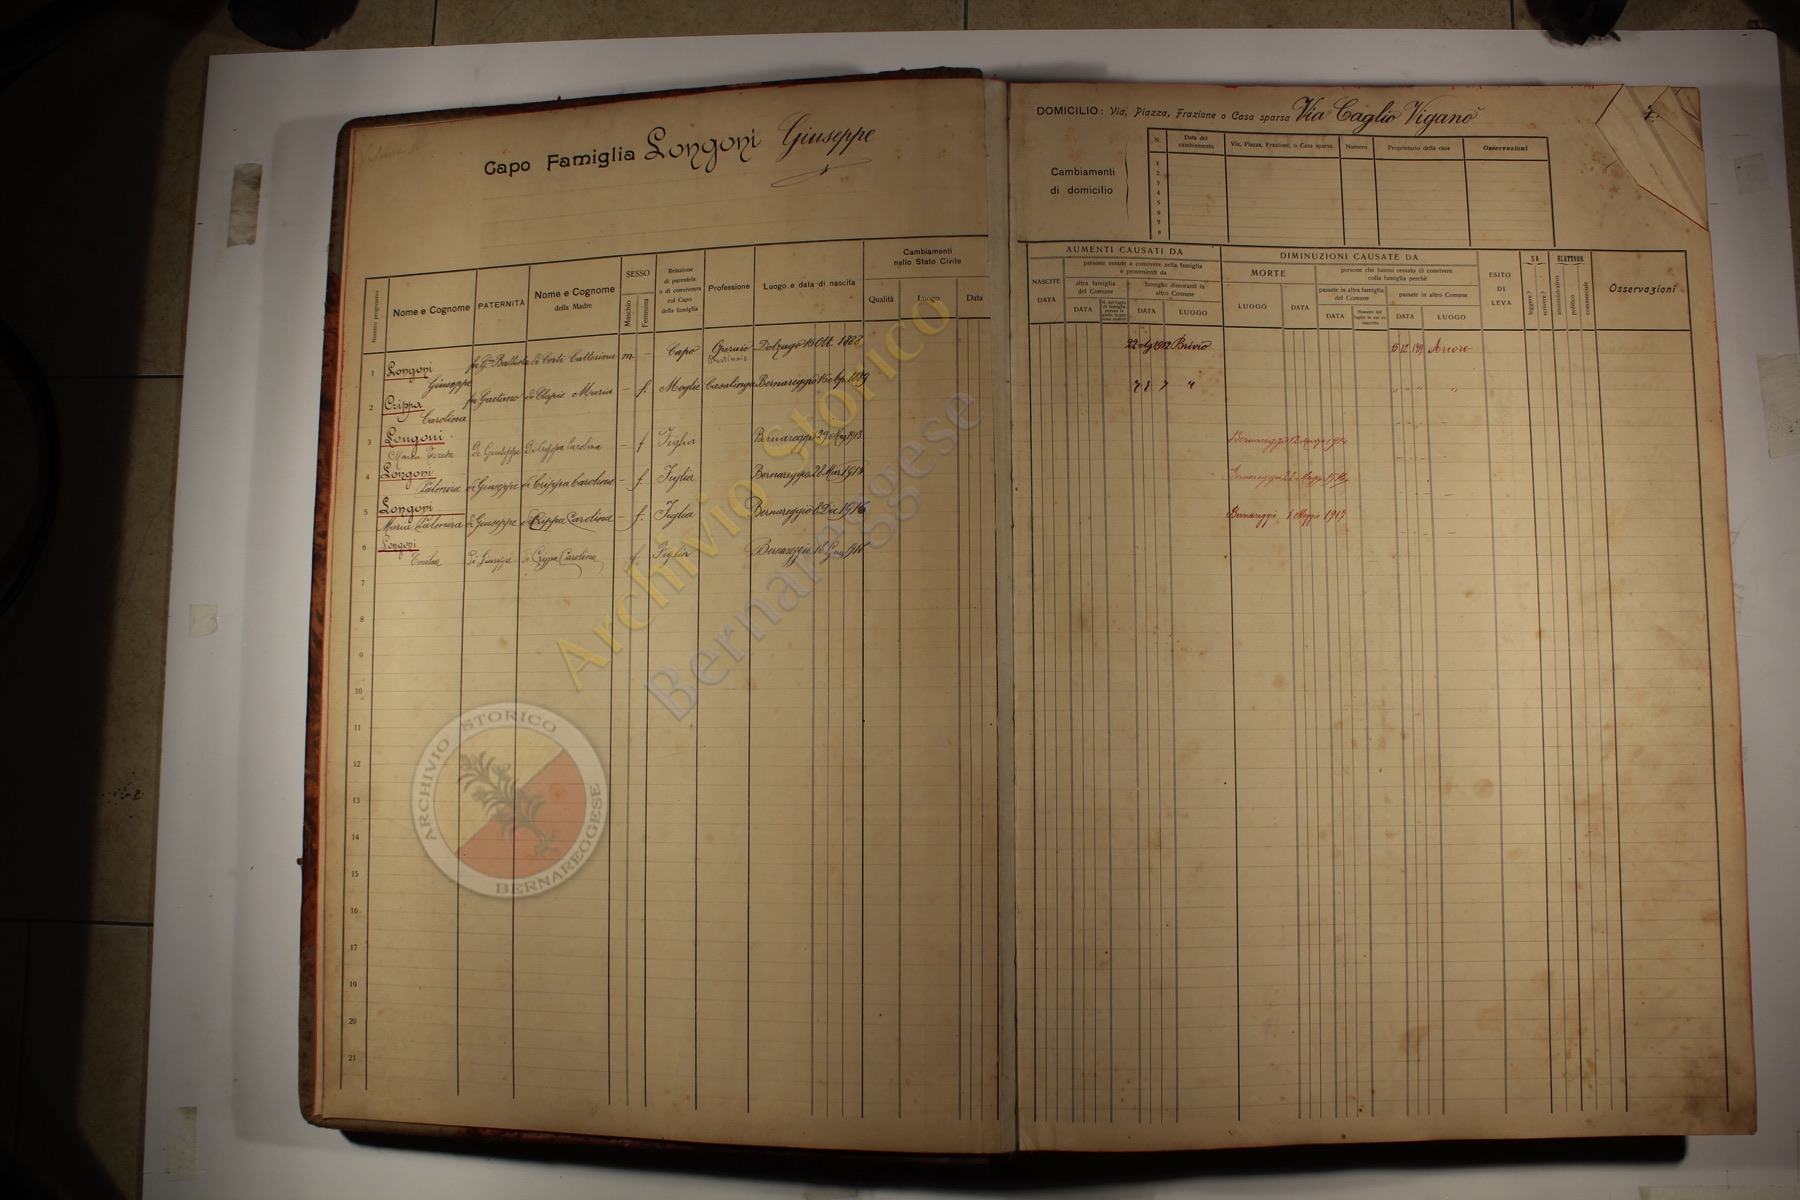 Capo Famiglia Longoni Giuseppe
DOMICILIO: Via, Piazza, Frazione o Casa sparsa Via Caglio Viganò
7.
Cambiamenti
di domicilio
N. Data del cambiamento Via, Piazza, Frazione, o Casa sparsa Numero Proprietario della casa Osservazioni
1
2
3
4
5
6
7
8
Numero progressivo
Nome e Cognome
PATERNITÀ
Nome e Cognome
della Madre
SESSO
Maschio
Femmina
Relazione
di parentela
o di convivenza
col Capo
della famiglia
Professione
Luogo e data di nascita
Cambiamenti
nello Stato Civile
Qualità Luogo Data
AUMENTI CAUSATI DA
NASCITE
DATA
persone venute a convivere nella famiglia
e provenienti da
altra famiglia
del Comune
DATA
famiglie dimoranti in
altro Comune
DATA LUOGO
DIMINUZIONI CAUSATE DA
MORTE
LUOGO DATA
persone che hanno cessato di convivere
colla famiglia perchè
passate in altra famiglia
del Comune
DATA
passate in altro Comune
DATA LUOGO
ESITO
DI
LEVA
SA
leggere?
scrivere?
ELETTORE
amministrativo
politico
commerciale
Osservazioni
1 Longoni Giuseppe fu Gio Battista di Corti Catterina m. – Capo Operaio Dolzago 15 Ott. 1888 22 1912 Brivio 15 12 Arcore
2 Crippa Carolina fu Gaetano di Clapis Maria – f. Moglie Casalinga Bernareggio 15 1889 " "
3 Longoni Maria di Giuseppe di Crippa Carolina – f Figlia Bernareggio 29 1913 Bernareggio 12
4 Longoni Palmira di Giuseppe di Crippa Carolina – f Figlia Bernareggio 28 Mar. 1915 Bernareggio 22 Maggio
5 Longoni Maria Palmira di Giuseppe di Crippa Carolina – f. Figlia Bernareggio 6 Dic 1916 Bernareggio 1 Maggio 1917
6 Longoni Emilia di Giuseppe di Crippa Carolina f. Figlia Bernareggio 18
7
8
9
10
11
12
13
14
15
16
17
18
19
20
21
Archivio storico
Bernareggese
ARCHIVIO STORICO
BERNAREGGESE